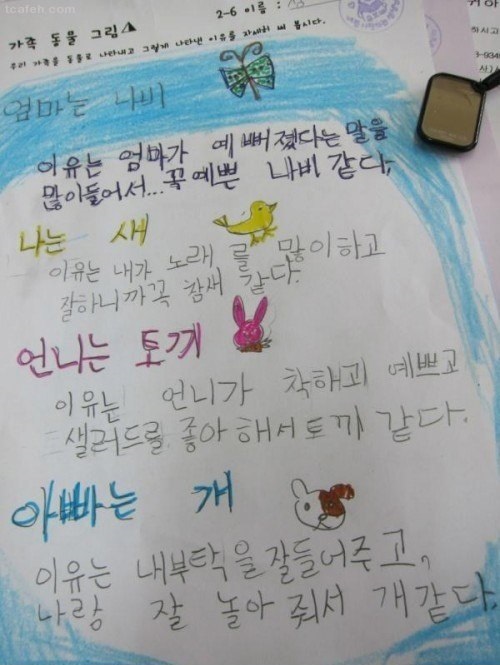 tcafeh.com
2-6 이름:
가족 동물 그림
우리 가족을 동물로 나타내고 그렇게 나타낸 이유를 자세히 써 봅시다.
엄마는 나비
이유는 엄마가 예뻐졌다는 말을
많이들어서...꼭 예쁜 나비 같다,
나는 새
이유는 내가 노래를 많이하고
잘하니까꼭 참새 같다.
언니는 토끼
이유는 언니가 착해고 예쁘고
샐러드를 좋아해서 토끼 같다.
아빠는 개
이유는 내부탁을 잘들어주고,
나랑 잘 놀아 줘서 개같다.